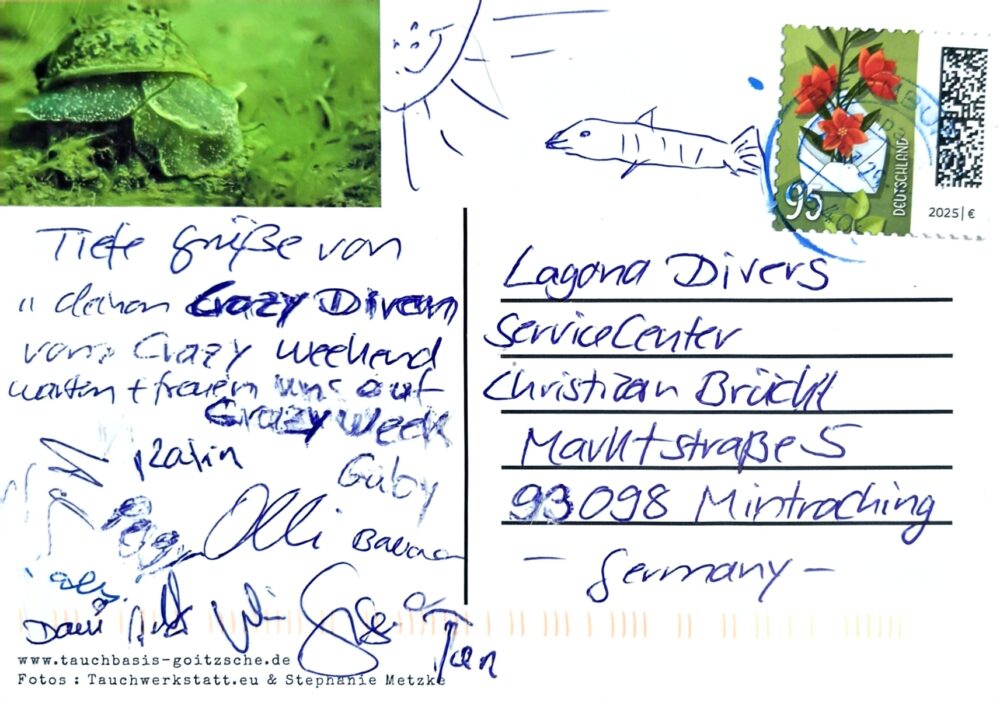 Tiefe Grüße von
" deinen Crazy Divern
vom Crazy Weekend
warten + freuen uns auf
Crazy Week
Katin
Gaby
Peggy
Olli
Dani
Jan
www.tauchbasis-goitzsche.de
Fotos : Tauchwerkstatt.eu & Stephanie Metzke
95
DEUTSCHLAND
2025 | €
Lagona Divers
ServiceCenter
Christian Brückl
Marktstraße 5
93098 Mintraching
– Germany –